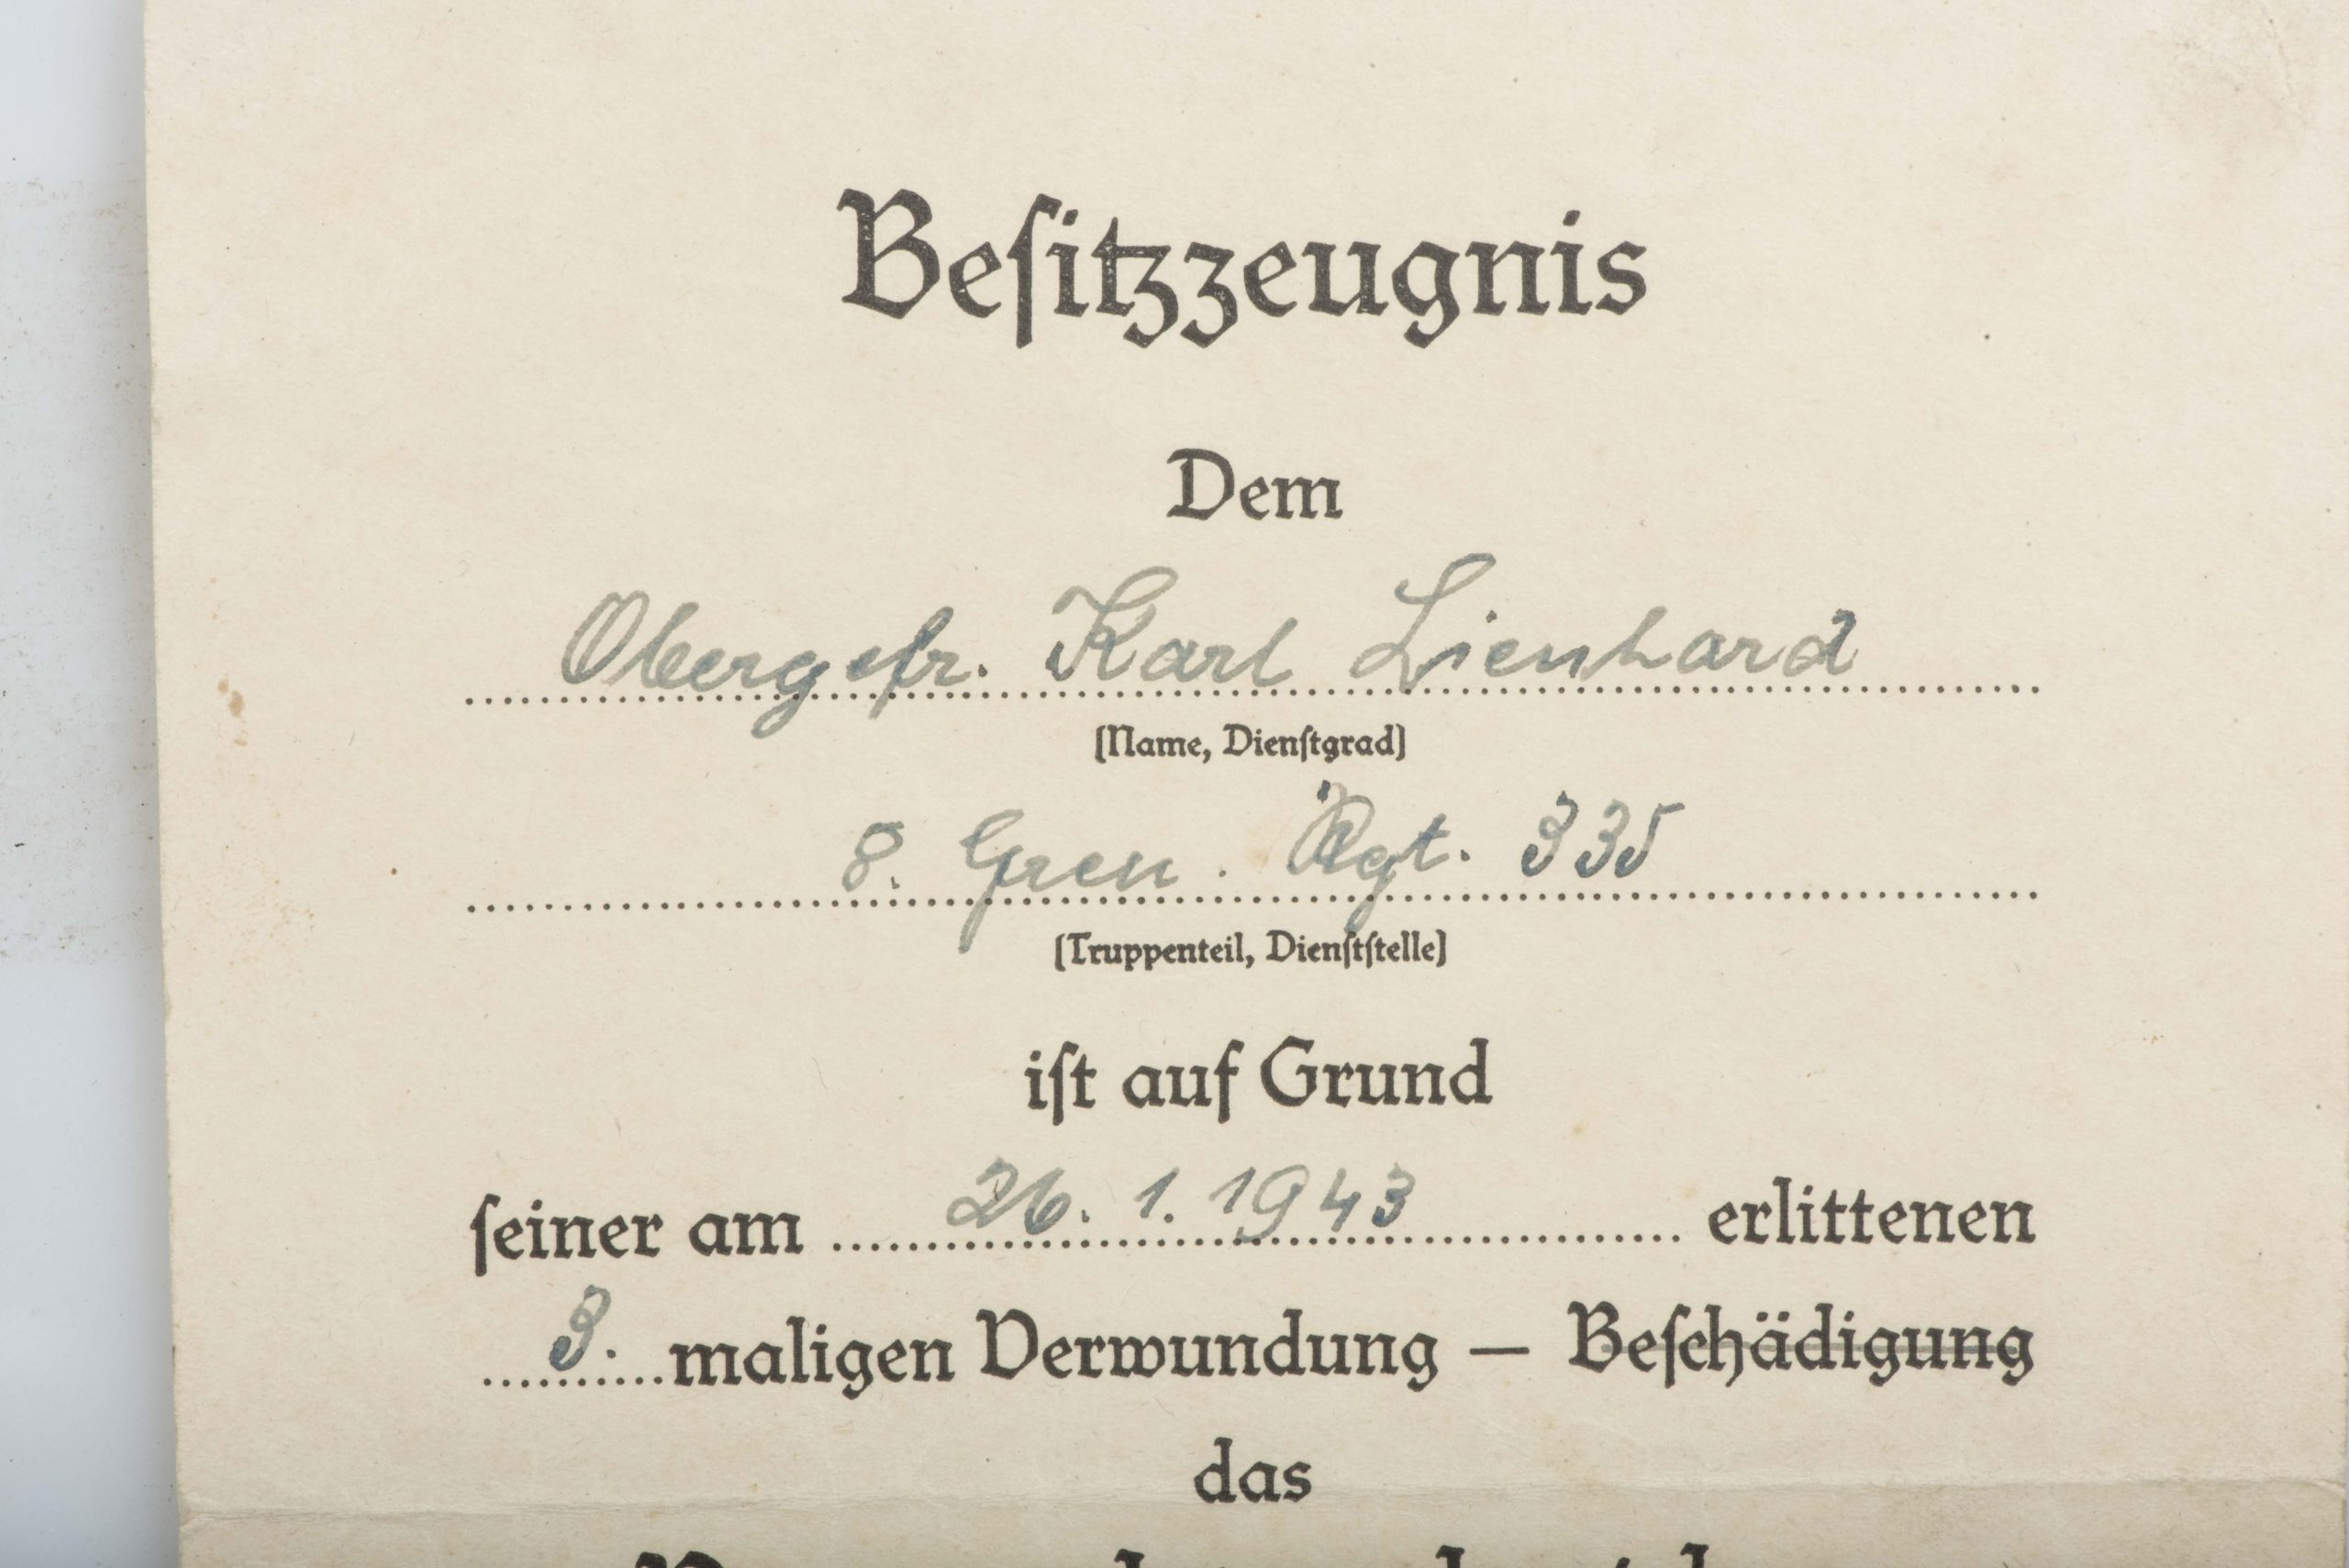 Beſitzzeugnis
Dem
Obergefr. Karl Lienhard
(Name, Dienſtgrad)
8. Gren. Rgt. 335
(Truppenteil, Dienſtſtelle)
iſt auf Grund
ſeiner am 26. 1. 1943 erlittenen
3. maligen Verwundung – Beſchädigung
das